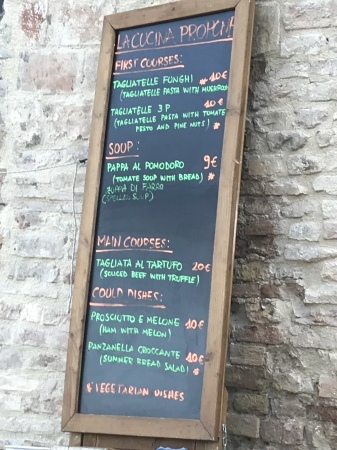 LA CUCINA PROPONE
FIRST COURSES:
TAGLIATELLE FUNGHI * 10€
(TAGLIATELLE PASTA WITH MUSHROOM
TAGLIATELLE 3 P 10€
(TAGLIATELLE PASTA WITH TOMATE
PESTO AND PINE NUTS) *
SOUP:
PAPPA AL POMODORO 9€
(TOMATE SOUP WITH BREAD) *
ZUPPA DI FARRO
(SPELLED SOUP)
MAIN COURSES:
TAGLIATA AL TARTUFO 20€
(SLICED BEEF WITH TRUFFLE)
COULD DISHES:
PROSCIUTTO E MELONE 10€
(HAM WITH MELON)
PANZANELLA CROCCANTE 10€
(SUMMER BREAD SALAD) *
* VEGETARIAN DISHES